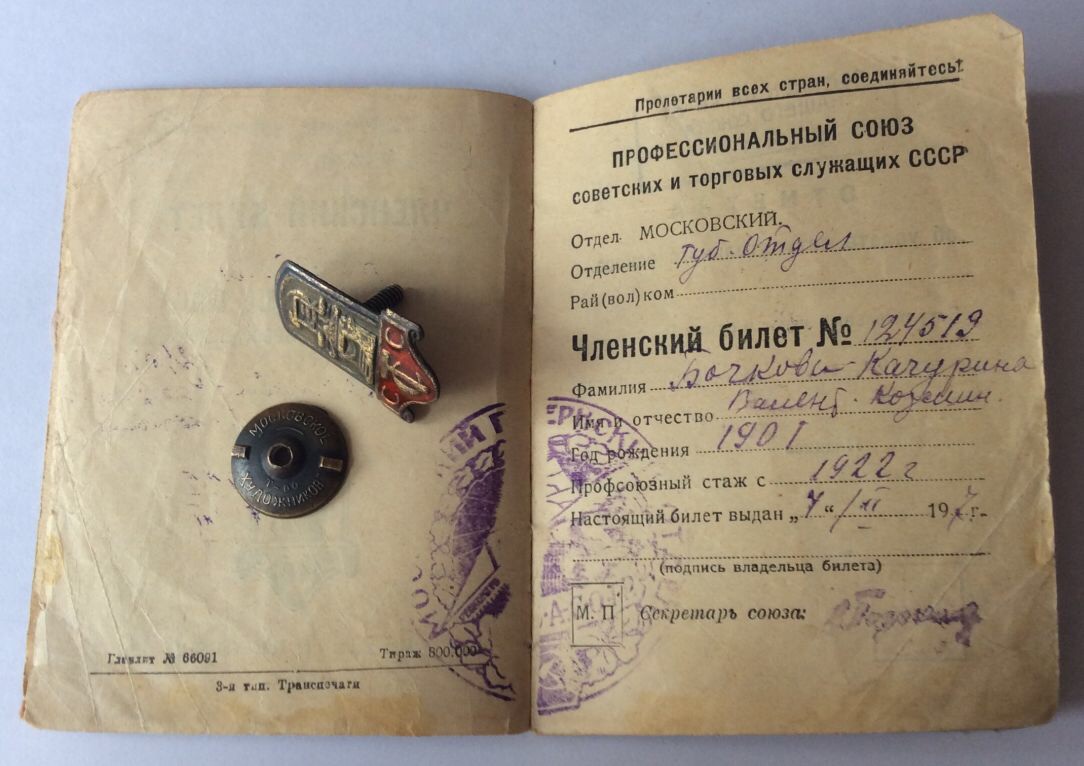 МОСКОВСКОЕ
Т-ВО
ХУДОЖНИКОВ
С
С
Главлит № 66091
Тираж 800.000
3-я тип. Транспечати
Пролетарии всех стран, соединяйтесь!
ПРОФЕССИОНАЛЬНЫЙ СОЮЗ
советских и торговых служащих СССР
Отдел МОСКОВСКИЙ.
Отделение Губ. Отдел
Рай(вол)ком
Членский билет № 124519
Фамилия Бочкова-Качурина
Имя и отчество Валент.
Год рождения 1901
Профсоюзный стаж с 1922 г
Настоящий билет выдан „4“/II 1927 г.
(подпись владельца билета)
М. П Секретарь союза: